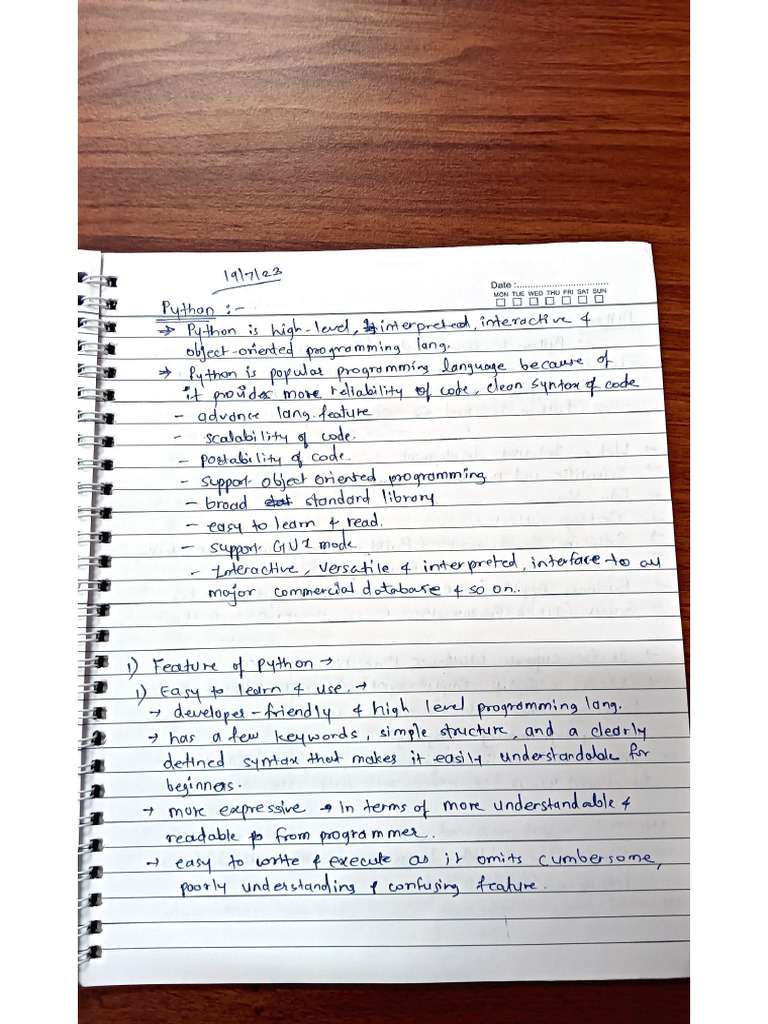 19/7/23
Date :
MON TUE WED THU FRI SAT SUN
Python :-
→ Python is high-level, interpreted, interactive &
object-oriented programming lang.
→ Python is popular programming language because of
it provides more reliability of code, clean syntax of code
- advance lang. feature
- scalability of code.
- Portability of code.
- support object oriented programming
- broad standard library
- easy to learn & read.
- support GUI mode
- Interactive, versatile & interpreted, interface to all
major commercial database & so on..
1) Feature of Python →
1) Easy to learn & use. →
→ developer-friendly & high level programming lang.
→ has a few keywords, simple structure, and a clearly
defined syntax that makes it easily understandable for
beginners.
→ more expressive → In terms of more understandable &
readable from programmer.
→ easy to write & execute as it omits cumbersome,
poorly understanding & confusing feature.